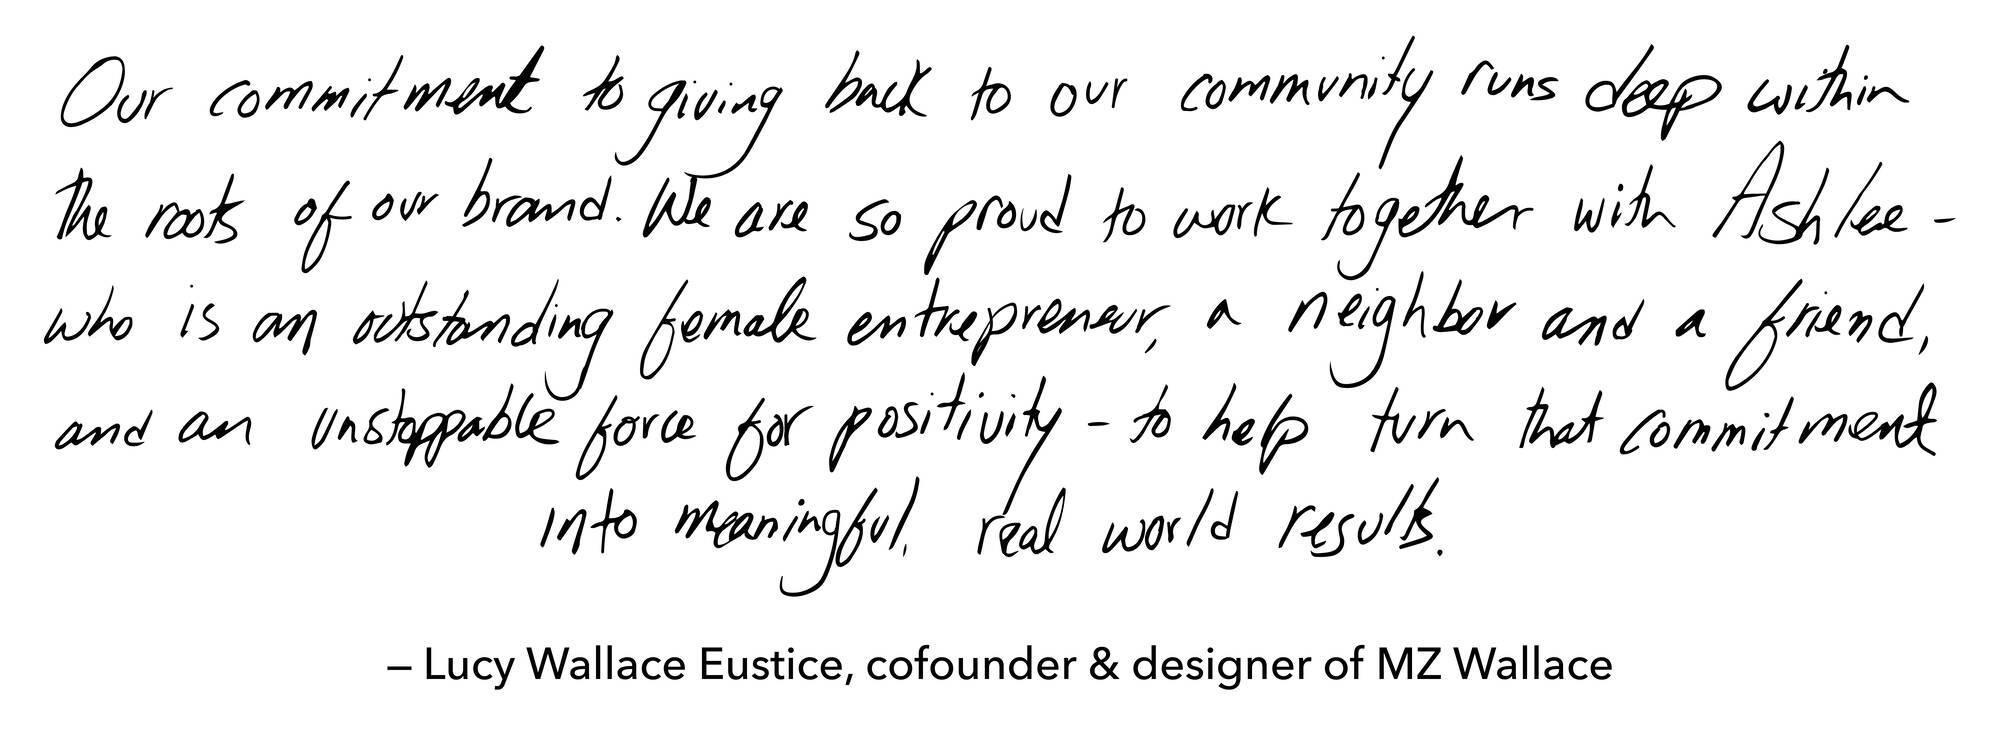 Our commitment to giving back to our community runs deep within
the roots of our brand. We are so proud to work together with Ashlee -
who is an outstanding female entrepreneur, a neighbor and a friend,
and an unstoppable force for positivity - to help turn that commitment
into meaningful, real world results.
– Lucy Wallace Eustice, cofounder & designer of MZ Wallace